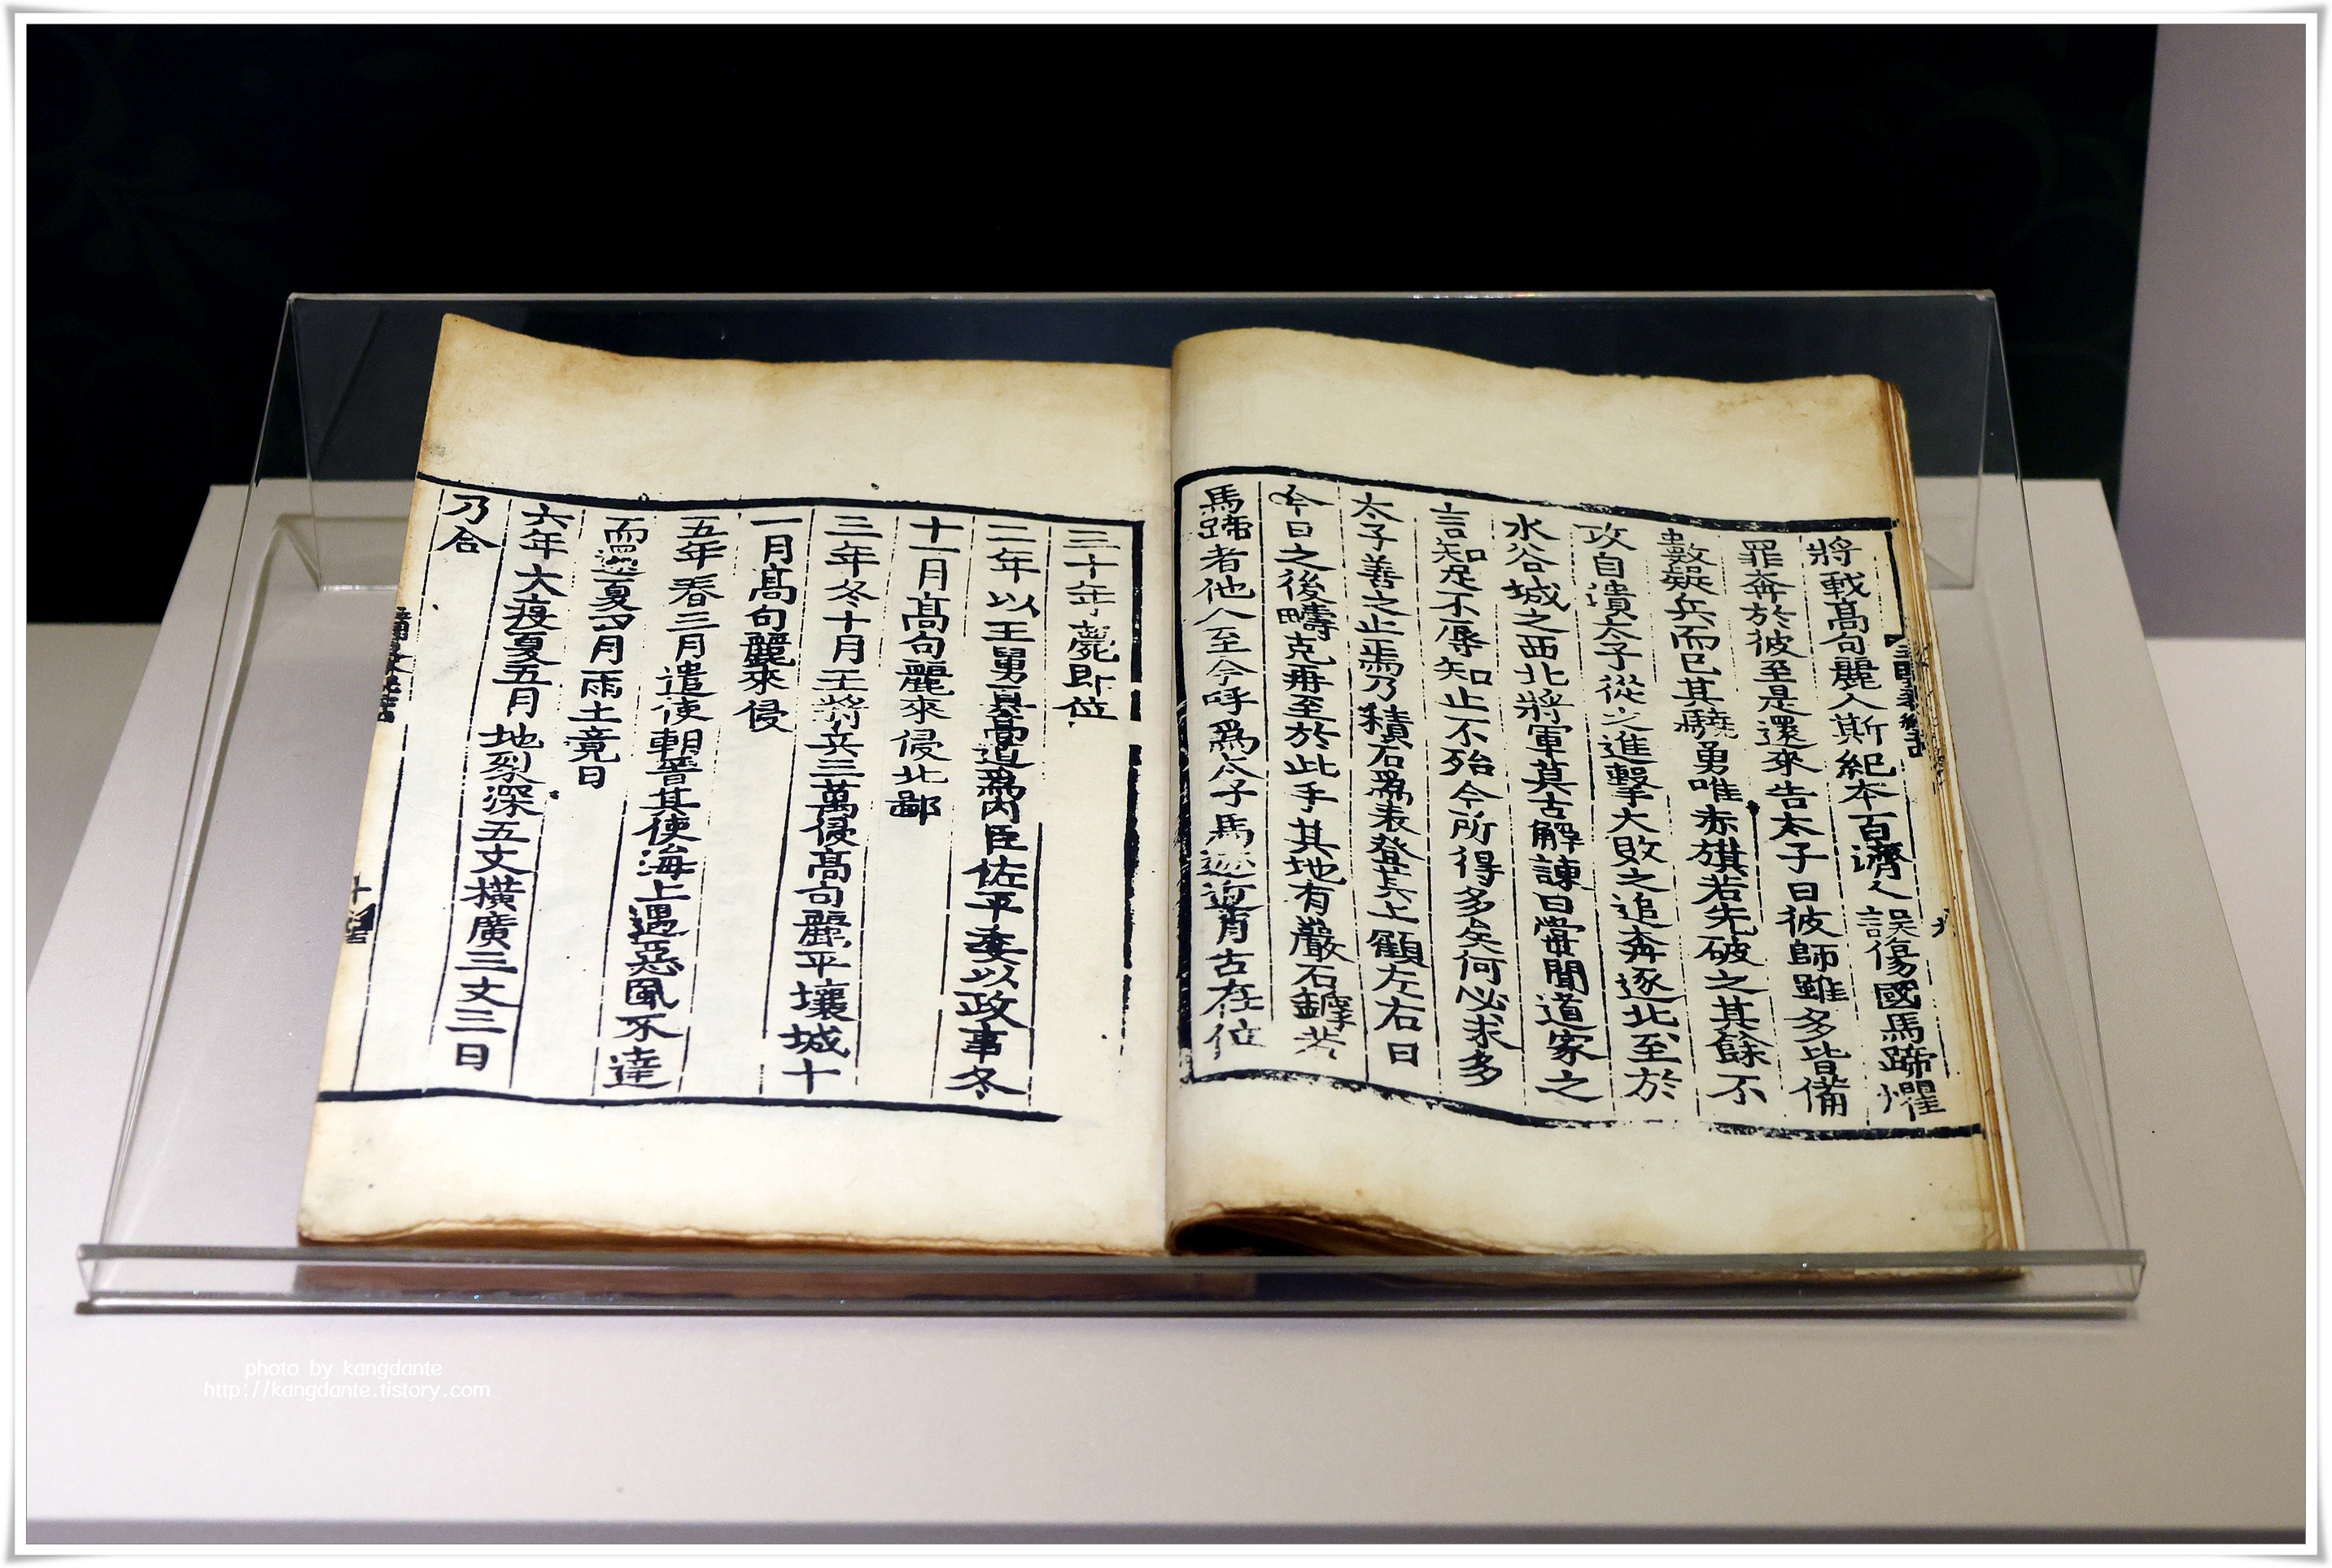 將戰高句麗人斯紀本百濟人誤傷國馬蹄懼
罪奔於彼至是還來告太子曰彼師雖多皆備
數疑兵而已其驍勇唯赤旗若先破之其餘不
攻自潰太子從之進擊大敗之追奔逐北至於
水谷城之西北將軍莫古解諫曰甞聞道家之
言知足不辱知止不殆今所得多矣何必求多
太子善之止焉乃積石爲表登其上顧左右曰
今日之後疇克再至於此乎其地有巖石罅若
馬蹄者他人至今呼爲太子馬迹近肖古在位
三十年薨即位
二年以王舅眞高道爲內臣佐平委以政事冬
十一月高句麗來侵北鄙
三年冬十月王將兵三萬侵高句麗平壤城十
一月高句麗來侵
五年春三月遣使朝晉其使海上遇惡風不達
而還夏四月雨土竟日
六年大疫夏五月地裂深五丈橫廣三丈三日
乃合
photo by kangdante
http://kangdante.tistory.com